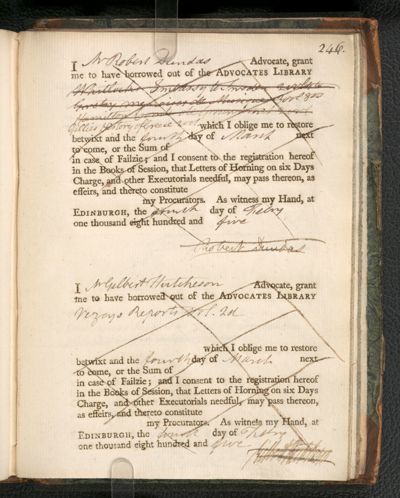 246.
I Mr Robert Dundas Advocate, grant
me to have borrowed out of the ADVOCATES LIBRARY
which I oblige me to restore
betwixt and the fourth day of March next
to come, or the Sum of
in case of Failzie; and I consent to the registration hereof
in the Books of Session, that Letters of Horning on six Days
Charge, and other Executorials needful, may pass thereon, as
effeirs, and thereto constitute
my Procurators. As witness my Hand, at
EDINBURGH, the fourth day of Febry
one thousand eight hundred and five
Robert Dundas
I Mr Gilbert Hutcheson Advocate, grant
me to have borrowed out of the ADVOCATES LIBRARY
Vezeys Reports Vol. 2d
which I oblige me to restore
betwixt and the fourth day of March next
to come, or the Sum of
in case of Failzie; and I consent to the registration hereof
in the Books of Session, that Letters of Horning on six Days
Charge, and other Executorials needful, may pass thereon, as
effeirs, and thereto constitute
my Procurators. As witness my Hand, at
EDINBURGH, the fourth day of Febry
one thousand eight hundred and five